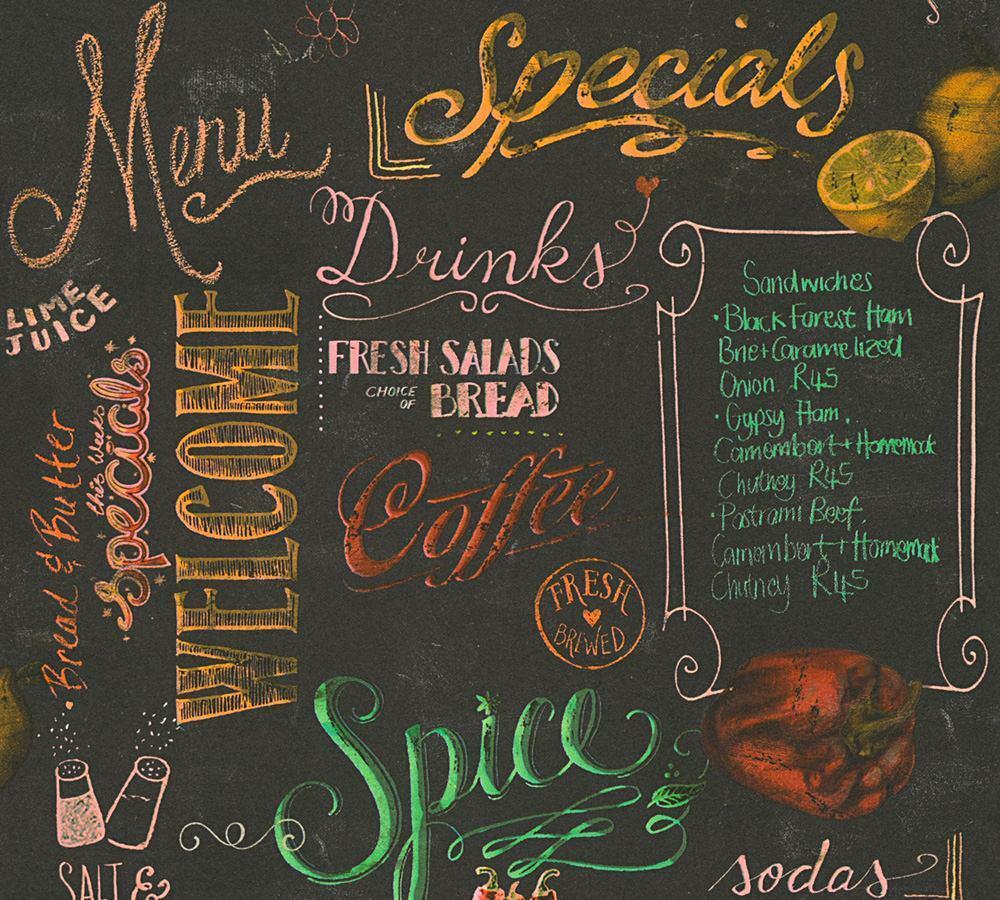 Menu
Specials
Drinks
LIME
JUICE
WELCOME
this weeks
Specials
Bread & Butter
FRESH SALADS
CHOICE
OF
BREAD
Coffee
FRESH
BREWED
Sandwiches
• Black Forest Ham
Brie+Caramelized
Onion R45
• Gypsy Ham.
Camombart+Homemade
Chutney R45
• Pastrami Beef.
Camombart+Homemade
Chutney R45
Spice
SALT &
sodas